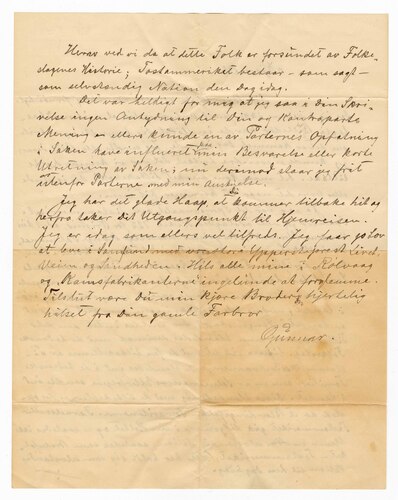 Herav ved vi da at dette Folk er forsundet av Folke-
dagenes Historie; Tostammeriket bestaar - som sagt -
som selvstændig Nation den Dag idag.
Det var heldigt for mig at jeg saa i Din Skri-
velse ingen Antydning til Din og Kontraparts
Mening - ellers kunde en av Parternes Opfatning
i Saken have influeret paa min Besvarelse eller korte
Utretning av Saken; nu derimod staar jeg frit
utenfor Parterne med min Autoritet.
Jeg har det glade Haap at Du kommer tilbake hit og
herfra taker Dit Utgangspunkt til Hjemreisen.
Jeg er idag som ellers vel tilfreds. Jeg faar go Lov
at leve i Samfund med
Veien og Sandheden. Hils alle mine i Kolvaag
og Ramsfabrikanterne ingelunde at forglemme.
Tilslut være Du min kjære Broder hjertelig
hilset fra Din gamle Farbror
Gunnar.